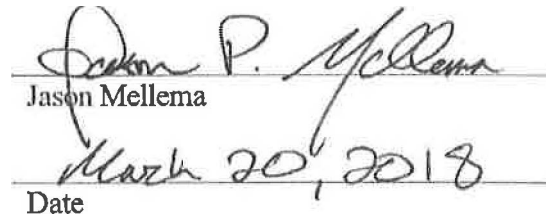 Jason P. Mellema
Jason Mellema
March 20, 2018
Date